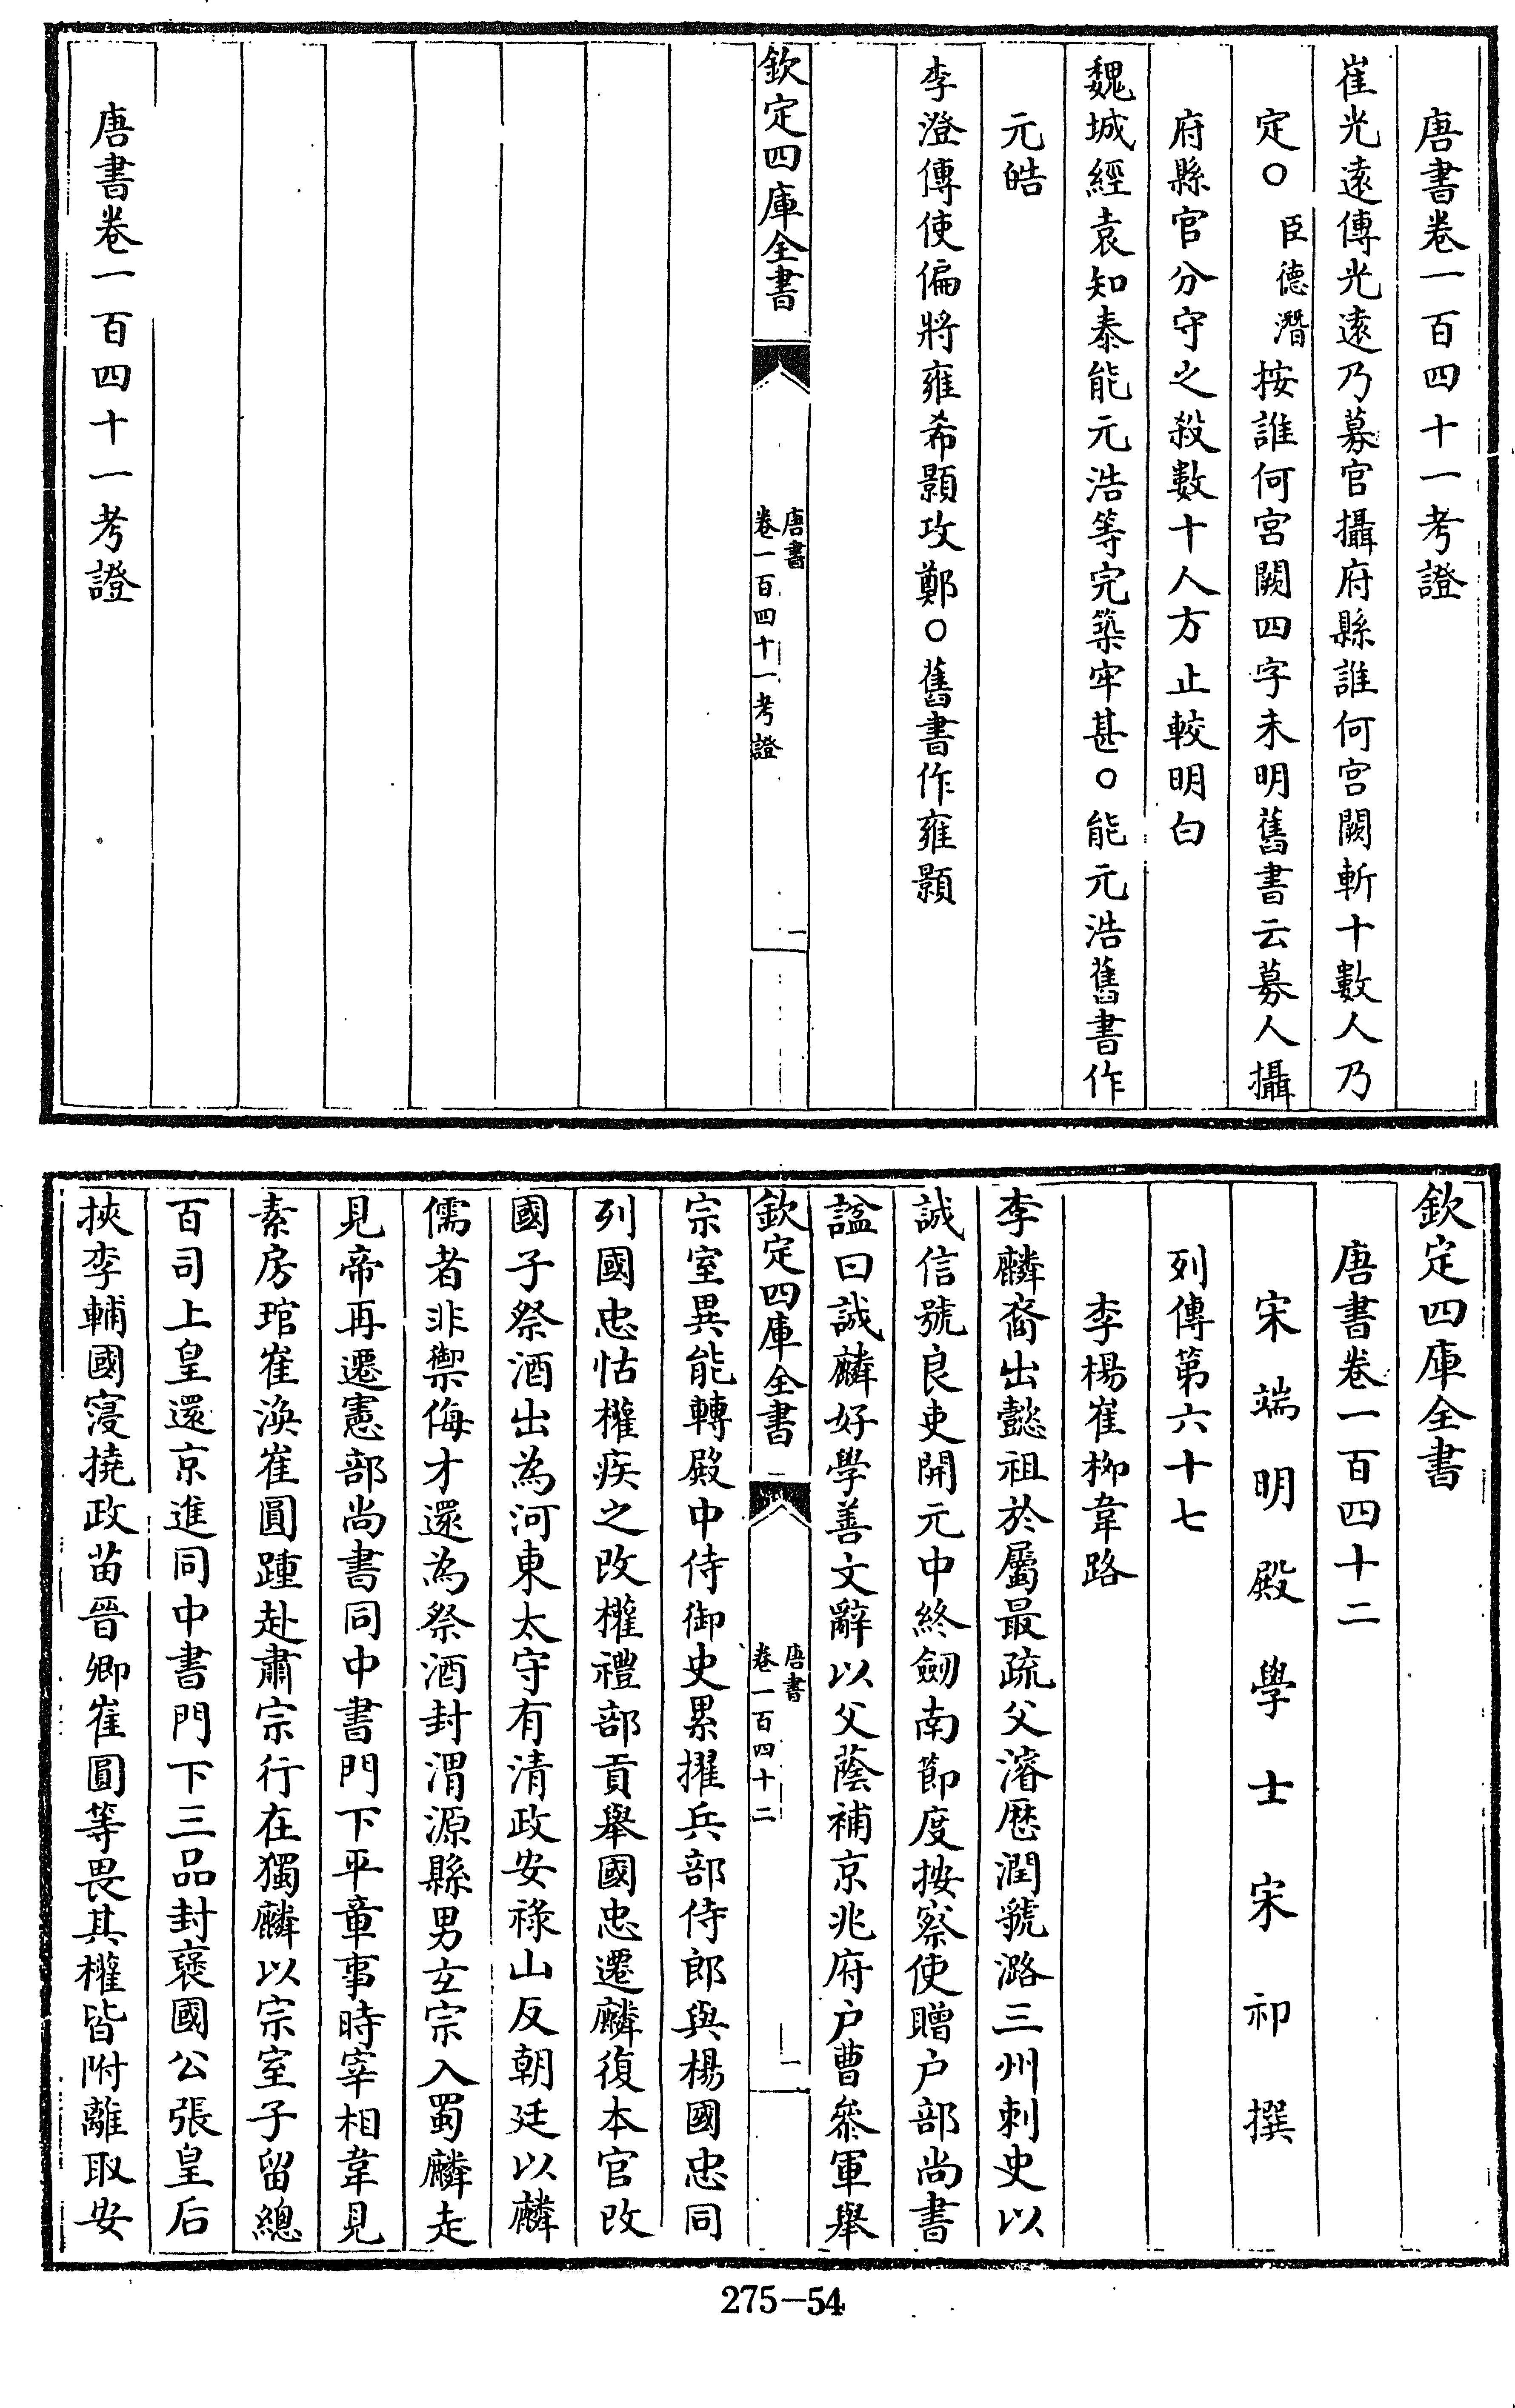 唐書卷一百四十一考證
崔光遠傳光遠乃募官攝府縣誰何宮闕斬十數人乃
定○臣德潛按誰何宮闕四字未明舊書云募人攝
府縣官分守之殺數十人方止較明白
魏城經袁知泰能元浩等完築牢甚○能元浩舊書作
元皓
李澄傳使偏將雍希顥攻鄭○舊書作雍顥
欽定四庫全書
唐書
卷一百四十一考證
一
唐書卷一百四十一考證
欽定四庫全書
唐書卷一百四十二
宋端明殿學士宋祁撰
列傳第六十七
李楊崔柳韋路
李麟裔出懿祖於屬最疏父濬歷潤虢潞三州刺史以
誠信號良吏開元中終劒南節度按察使贈户部尚書
諡曰誠麟好學善文辭以父蔭補京兆府户曹參軍舉
欽定四庫全書
唐書
卷一百四十二
一
宗室異能轉殿中侍御史累擢兵部侍郎與楊國忠同
列國忠怙權疾之改權禮部貢舉國忠遷麟復本官改
國子祭酒出為河東太守有清政安祿山反朝廷以麟
儒者非禦侮才還為祭酒封渭源縣男玄宗入蜀麟走
見帝再遷憲部尚書同中書門下平章事時宰相韋見
素房琯崔渙崔圓踵赴肅宗行在獨麟以宗室子留總
百司上皇還京進同中書門下三品封褒國公張皇后
挾李輔國寖撓政苗晉卿崔圓等畏其權皆附離取安
275-54